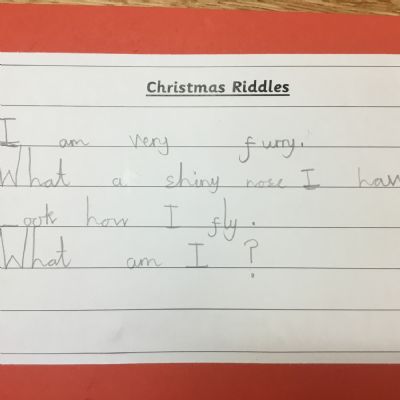 Christmas Riddles
I am very furry.
What a shiny nose I hav
Look how I fly.
What am I ?